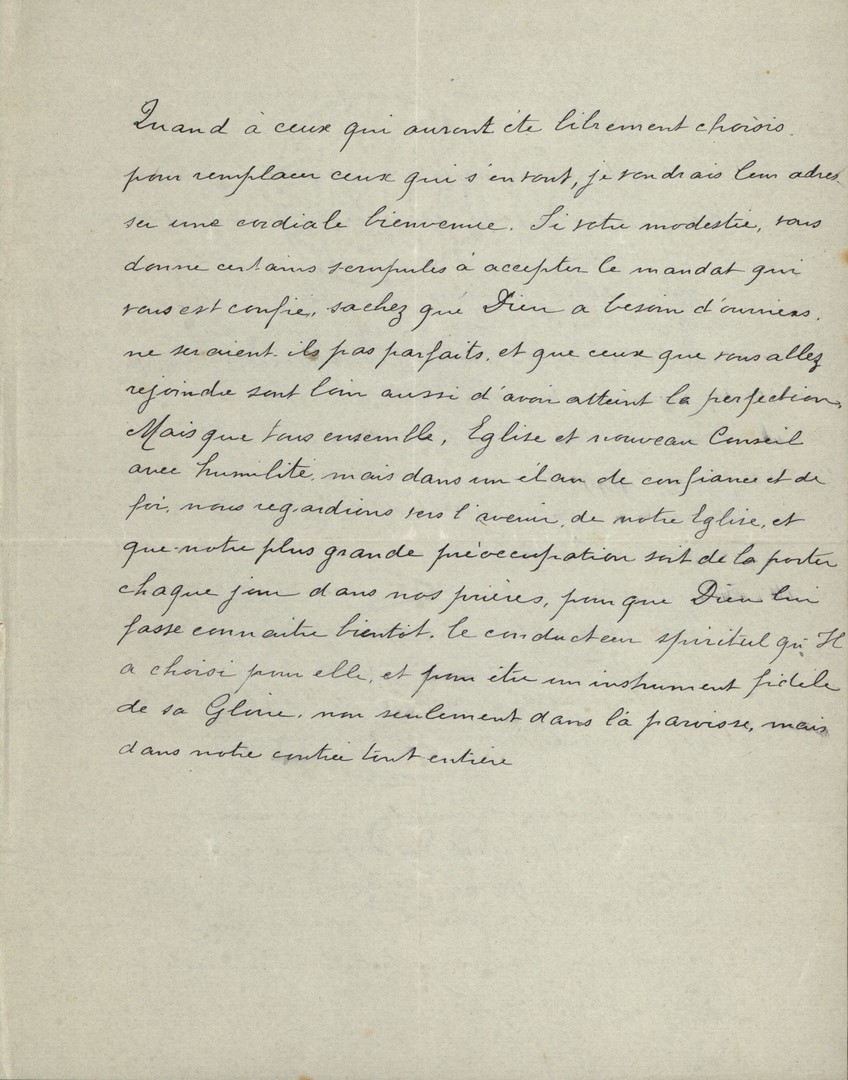 Quand à ceux qui auront été librement choisis
pour remplacer ceux qui s'en vont, je voudrais leur adres
ser une cordiale bienvenue. Si votre modestie, vous
donne certains scrupules à accepter le mandat qui
vous est confié, sachez que Dieu a besoin d'ouvriers,
ne seraient-ils pas parfaits, et que ceux que vous allez
rejoindre sont loin aussi d'avoir atteint la perfection,
Mais que tous ensemble, Eglise et nouveau Conseil
avec humilité, mais dans un élan de confiance et de
foi, nous regardions vers l'avenir, de notre Eglise, et
que notre plus grande préoccupation soit de la porter
chaque jour dans nos prières, pour que Dieu lui
fasse connaitre bientôt, le conducteur spirituel qu'Il
a choisi pour elle, et pour être un instrument fidèle
de sa Gloire, non seulement dans la paroisse, mais
dans notre contrée tout entière